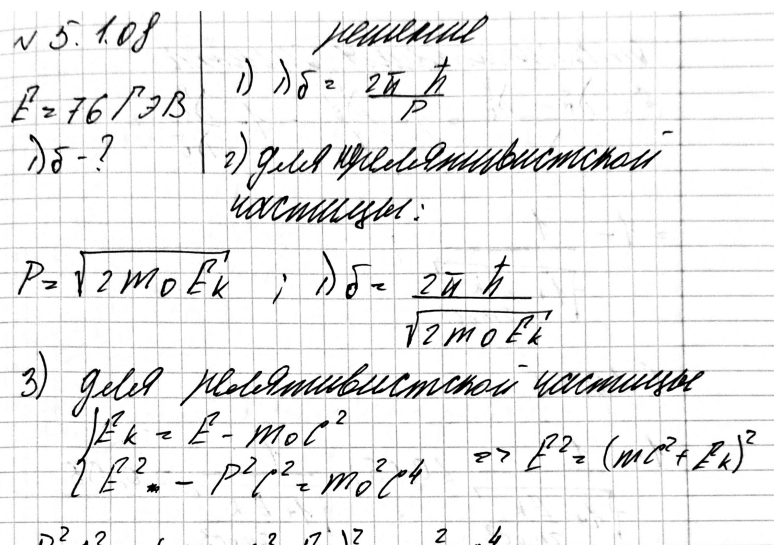 N 5.1.08
решение
E = 76 ГэВ
λб - ?
1) λб = 2π ħ / P
2) для нрелятивистской
частицы:
P = √(2 m₀ Eк) ; λб = 2π ħ / √(2 m₀ Eк)
3) для релятивистской частицы
{ Eк = E - m₀c²
{ E² - P²c² = m₀²c⁴ => E² = (mc² + Eк)²